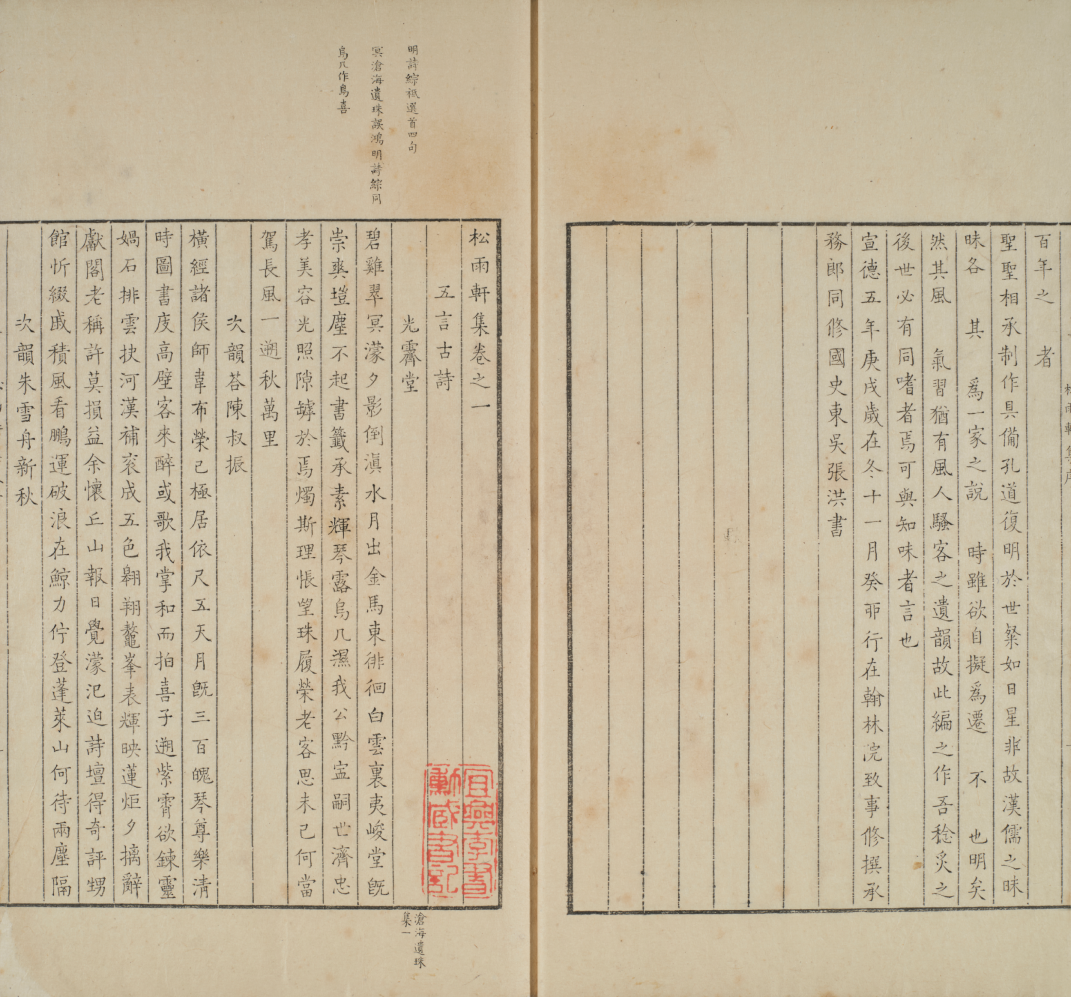 百年之　者
聖聖相承制作具備孔道復明於世粲如日星非故漢儒之昧
昧各　其　爲一家之説　時雖欲自擬爲遷　不　也明矣
然其風　氣習猶有風人騷客之遺韻故此編之作吾稔炙之
後世必有同嗜者焉可與知味者言也
宣德五年庚戌歲在冬十一月癸夘行在翰林院致事修撰承
務郎同修國史東吳張洪書
明詩綜祗選首四句
冥滄海遺珠誤鴻明詩綜同
烏几作烏喜
松雨軒集卷之一
五言古詩
光霽堂
碧雞翠冥濛夕影倒滇水月出金馬東徘徊白雲裏夷峻堂旣
崇爽塏塵不起書籤承素輝琴露烏几濕我公黔寍嗣世濟忠
孝美容光照隙罅於焉燭斯理悵望珠履榮老客思未已何當
駕長風一遡秋萬里
次韻荅陳叔振
橫經諸侯師韋布榮已極居依尺五天月旣三百魄琴尊樂清
時圖書庋高壁客來醉或歌我掌和而拍喜子遡紫霄欲鍊靈
媧石排雲抉河漢補衮成五色翱翔鼇峯表輝映蓮炬夕摛辭
獻閣老稱許莫損益余懷丘山報日覺濛汜迫詩壇得奇評甥
館忻綴戚積風看鵬運破浪在鯨力佇登蓬萊山何待兩塵隔
次韻朱雪舟新秋
滄海遺珠
集一
宜興李書
勳臧書記